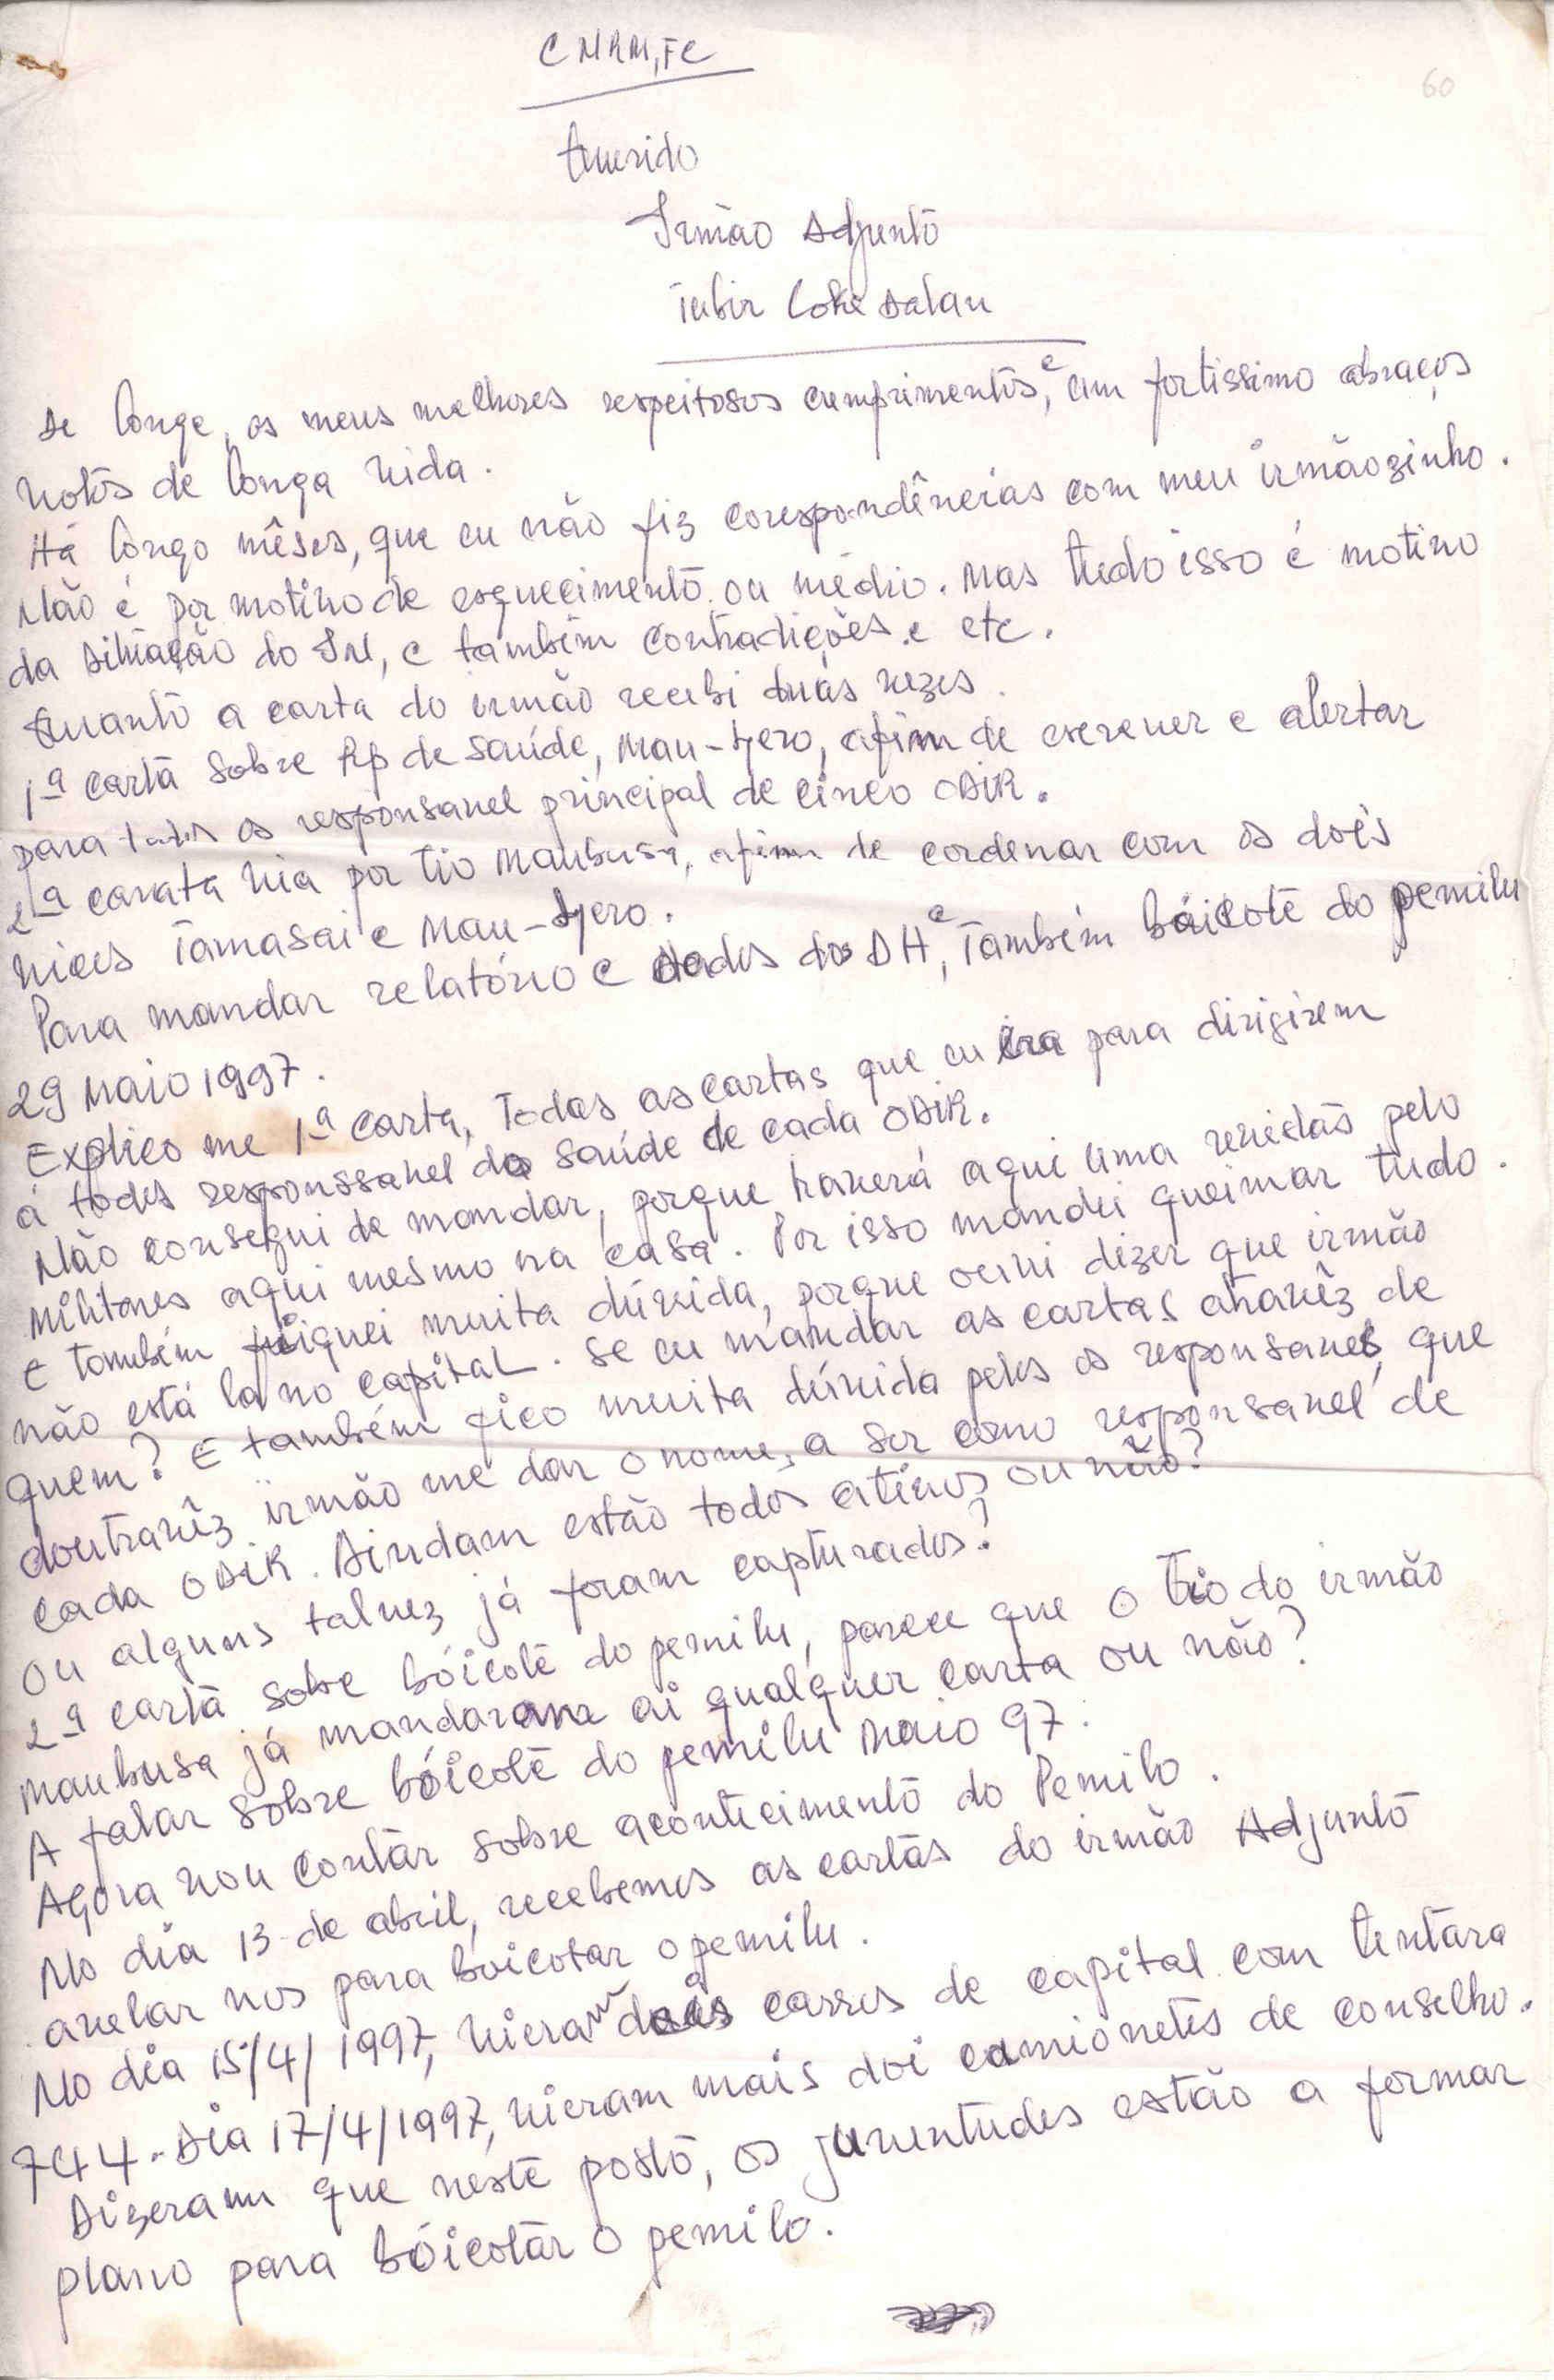 CNRM, FC
60
Querido
Irmão Adjunto
Lubir Loke Dalan
De longe, os meus melhores respeitosos cumprimentos, e um fortissimo abraços
votos de longa vida.
Há longo mêses, que eu não fiz corespondências com meu irmãozinho.
Não é por motivo de esquecimento ou médio. Mas tudo isso é motivo
da situação do In, e também contradições e etc.
Quanto a carta do irmão recebi duas vezes.
1ª carta sobre Rp de saúde, Mau-Djero, afim de escrever e alertar
para todos os responsavel principal de cinco ODIR.
2ª carata via por tio Maubusa, afim de cordenar com os dois
vices Tamasai e Mau-Djero.
Para mandar relatório e dados dos DH, e Também bóicote do pemilu
29 Maio 1997.
Explico me 1ª carta, Todas as cartas que eu era para dirigirem
á todos responssavel da saúde de cada ODIR.
Não consegui de mandar, porque haverá aqui uma revistas pelo
militares aqui mesmo na casa. Por isso mandei queimar tudo.
E também fiquei muita dúvida, porque ouvi dizer que irmão
não está la no capital. Se eu mandar as cartas atravêz de
quem? E também fico muita dúvida pelos os responsaveis, que
doutravêz irmão me dar o nome, a ser como responsavel de
cada ODIR. Aindam estão todos ativos ou não?
Ou alguns talvez já foram capturados?
2ª carta sobre bóicote do pemilu, parece que o tio do irmão
Maubusa já mandaram ai qualquer carta ou não?
A falar sobre bóicote do pemilu Maio 97.
Agora vou contar sobre acontecimento do Pemilo.
No dia 13 de abril, recebemos as cartas do irmão Adjunto
avelar nos para boicotar o pemilu.
No dia 15/4/1997, vieram dois carros de capital com tentara
744. Dia 17/4/1997, vieram mais doi camionetes de conselho.
Dizeram que neste posto, os juventudes estão a formar
plano para bóicotar o pemilo.